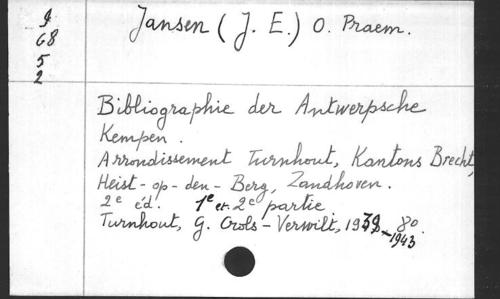 9
68
5
2
Jansen (J. E.) O. Praem.
Bibliographie der Antwerpsche
Kempen.
Arrondissement Turnhout, Kantons Brecht,
Heist-op-den-Berg, Zandhoven.
2e éd. 1e et 2e partie
Turnhout, G. Crols-Verwilt, 1939-1943 8o.